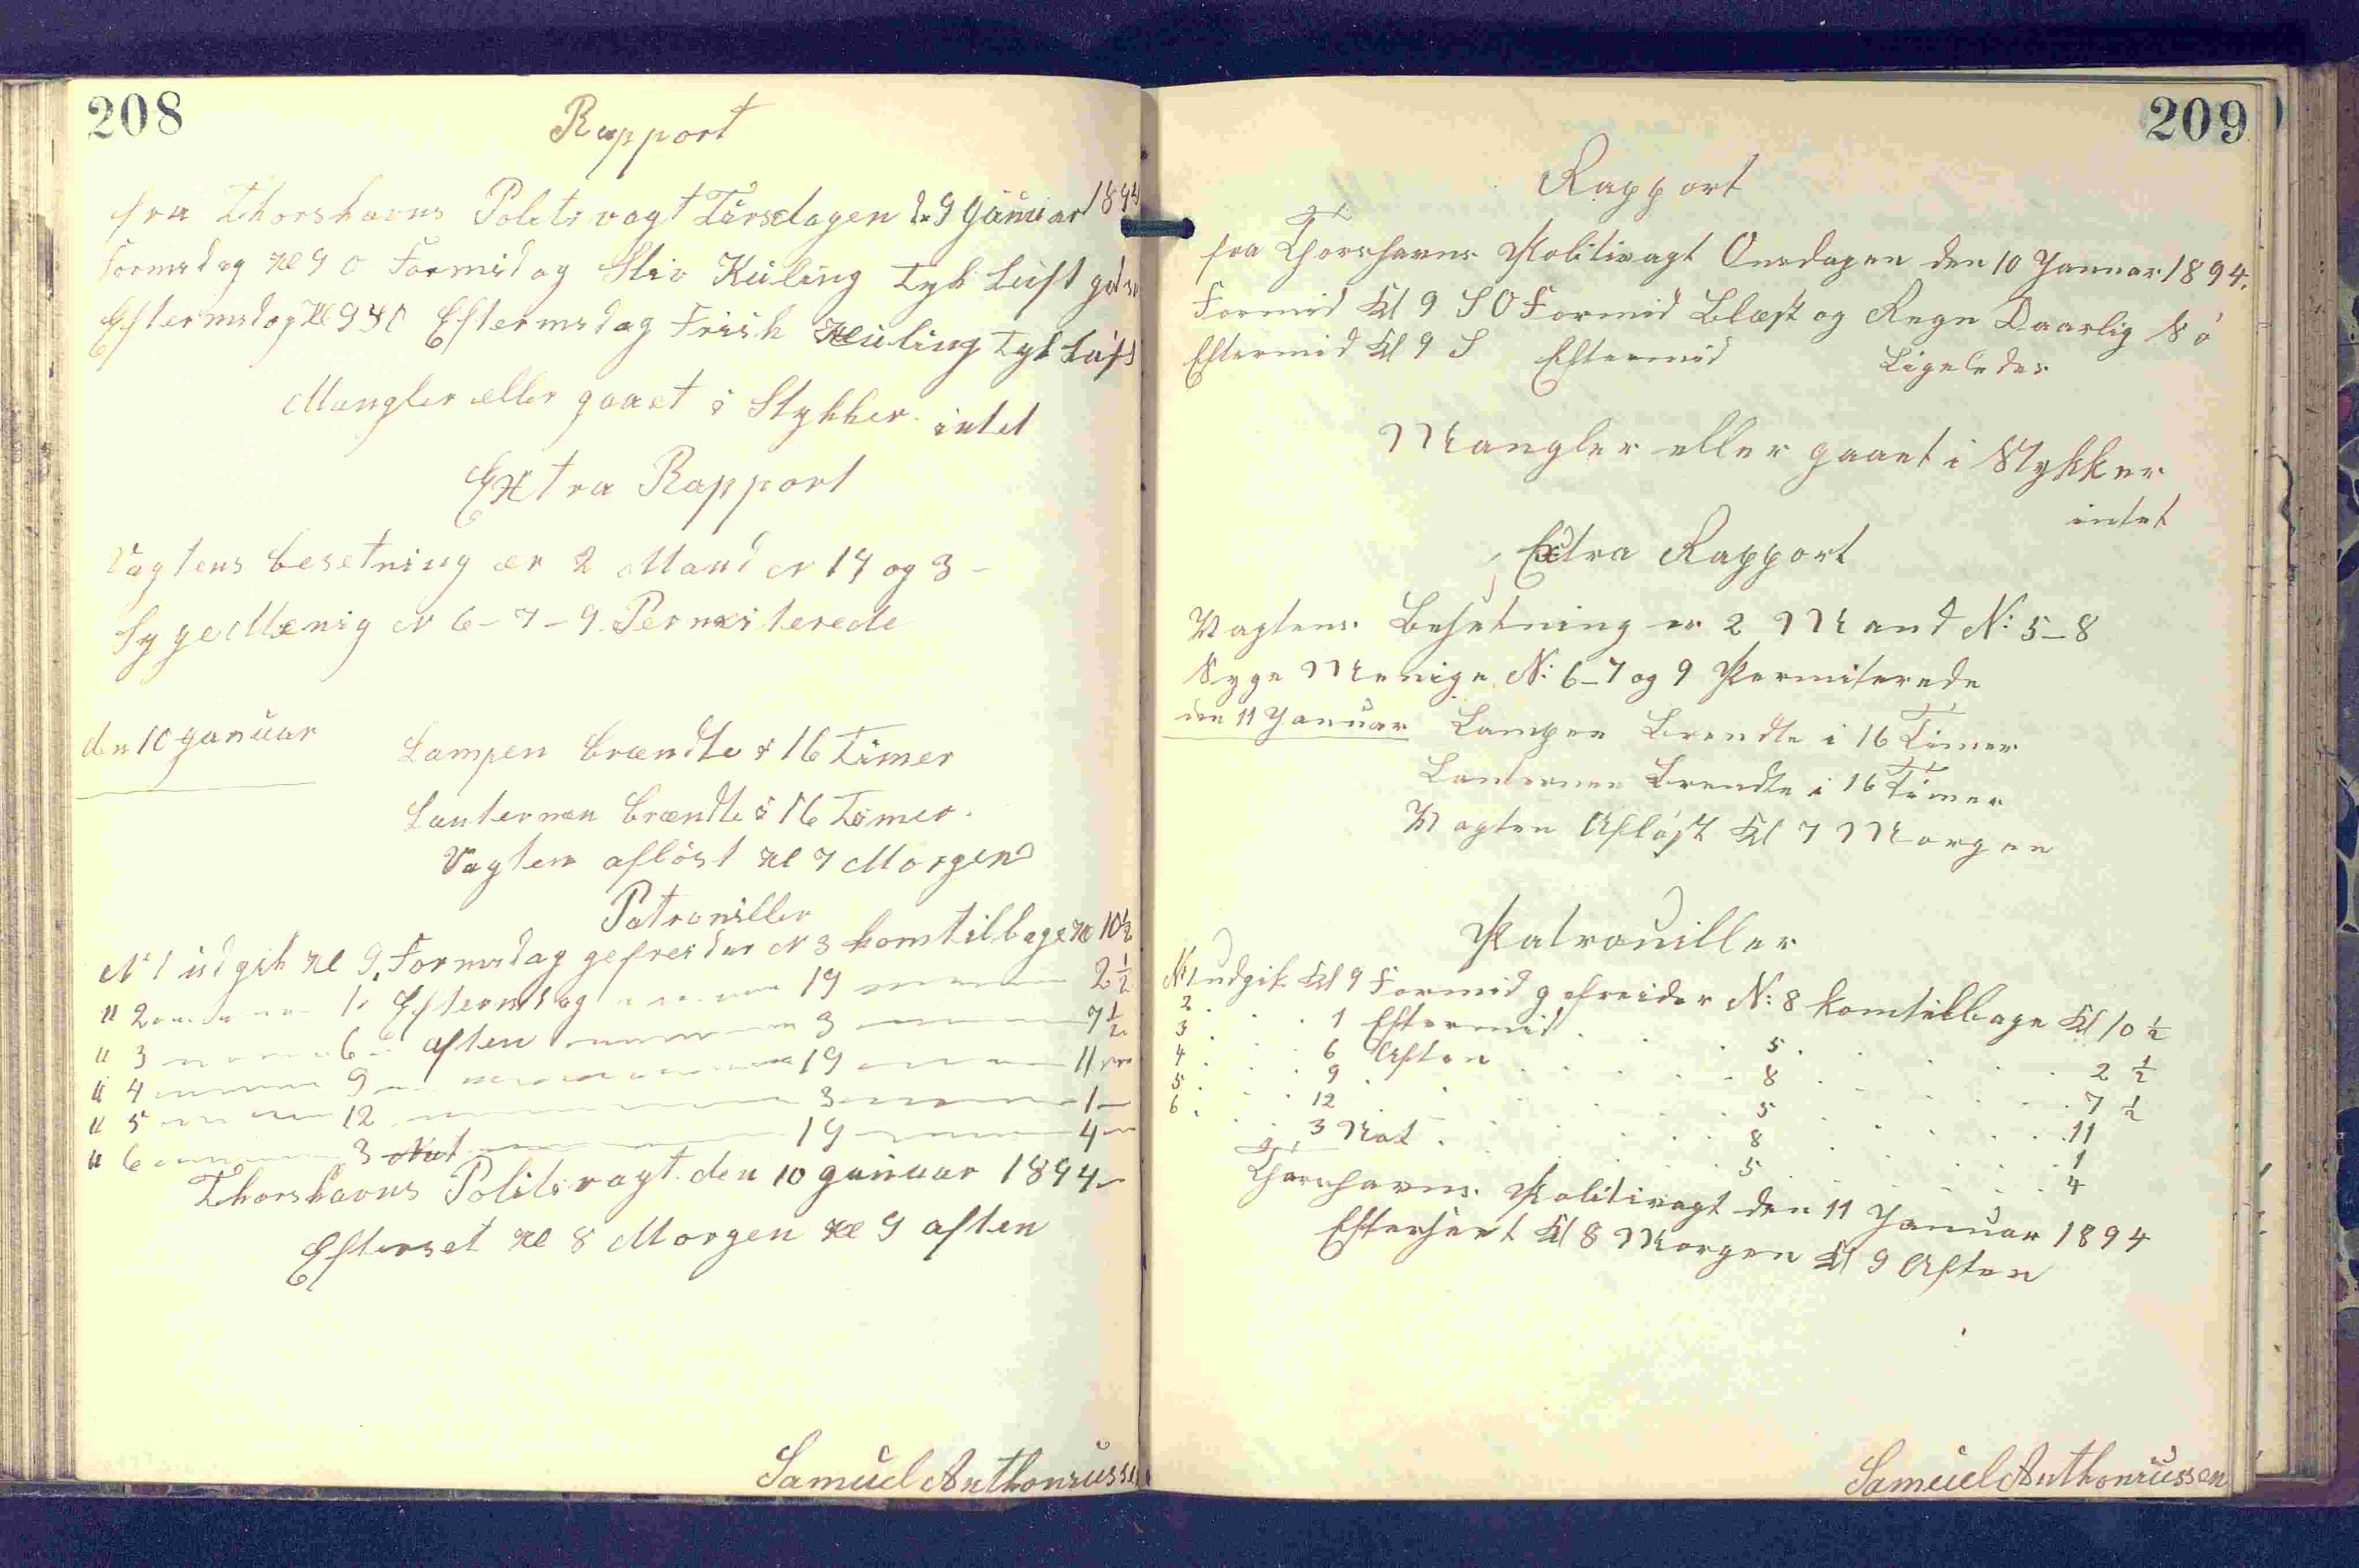 208
Rapport
fra Thorshavns Politivagt Tirsdagen d 9 Januar 1894
Formidag Kl 9 O Formidag Stiv Kuling Tyk Luft
Eftermidag Kl 9 Eftermidag Frisk Kuling Tyk Luft
Mangler eller gaaet i Stykker intet
Extra Rapport
Vagtens besetning er 2 Mand N 19 og 3 -
Syge Menig N 6 - 7 - 9 Permiterede
den 10 Januar Lampen brændte i 16 Timer
Lanternen brændte i 16 Timer.
Vagten afløst Kl 7 Morgen
Patrouiller
N 1 udgik Kl 9 Formidag gefreider N 3 kom tilbage Kl 10 ½
" 2 1 Eftermidag 19 2 ½
" 3 6 aften 3 7 ½
" 4 9 19 11
" 5 12 3 1
" 6 3 Nat 19 4
Thorshavns Politivagt den 10 Januar 1894
Efterset Kl 8 Morgen Kl 9 aften
Samuel Anthoniussen
209
Rapport
fra Thorshavns Politivagt Onsdagen den 10 Januar 1894.
Formid Kl 9 SO Formid Blæst og Regn Daarlig Sö
Eftermid Kl 9 S Eftermid Ligeledes
Mangler eller gaaet i Stykker
intet
Extra Rapport
Vagtens Besetning er 2 Mand N: 5 - 8
Syge Menige N: 6 - 7 og 9 Permiterede
den 11 Januar Lampen Brendte i 16 Timer
Lanternen Brendte i 16 Timer
Vagten Afløst Kl 7 Morgen
Patrouiller
N: 1 udgik Kl 9 Formid gefreider N: 8 kom tilbage Kl 10 ½
2 . . . 1 Eftermid . . . 5 . . . 2 ½
3 . . . 6 Aften . . . 8 . . . 7 ½
4 . . . 9 . . . 5 . . . 11
5 . . . 12 . . . 8 . . . 1
6 . . . 3 Nat . . . 5 . . . 4
Thorshavns Politivagt den 11 Januar 1894
Efterseet Kl 8 Morgen Kl 9 Aften
Samuel Anthoniussen